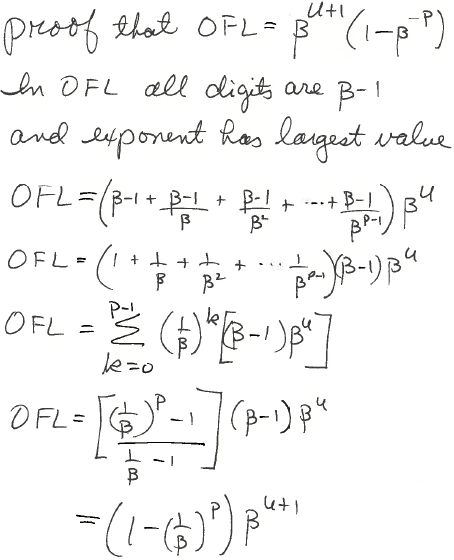 proof that OFL = β^{U+1}(1-β^{-P})
In OFL all digits are β-1
and exponent has largest value
OFL = (β-1 + \frac{β-1}{β} + \frac{β-1}{β^2} + ---+ \frac{β-1}{β^{P-1}}) β^U
OFL = (1 + \frac{1}{β} + \frac{1}{β^2} + ··· \frac{1}{β^{P-1}})(β-1) β^U
OFL = \sum_{k=0}^{P-1} (\frac{1}{β})^k [(β-1) β^U]
OFL = [\frac{(\frac{1}{β})^P - 1}{\frac{1}{β} - 1}] (β-1) β^U
= (1-(\frac{1}{β})^P) β^{U+1}